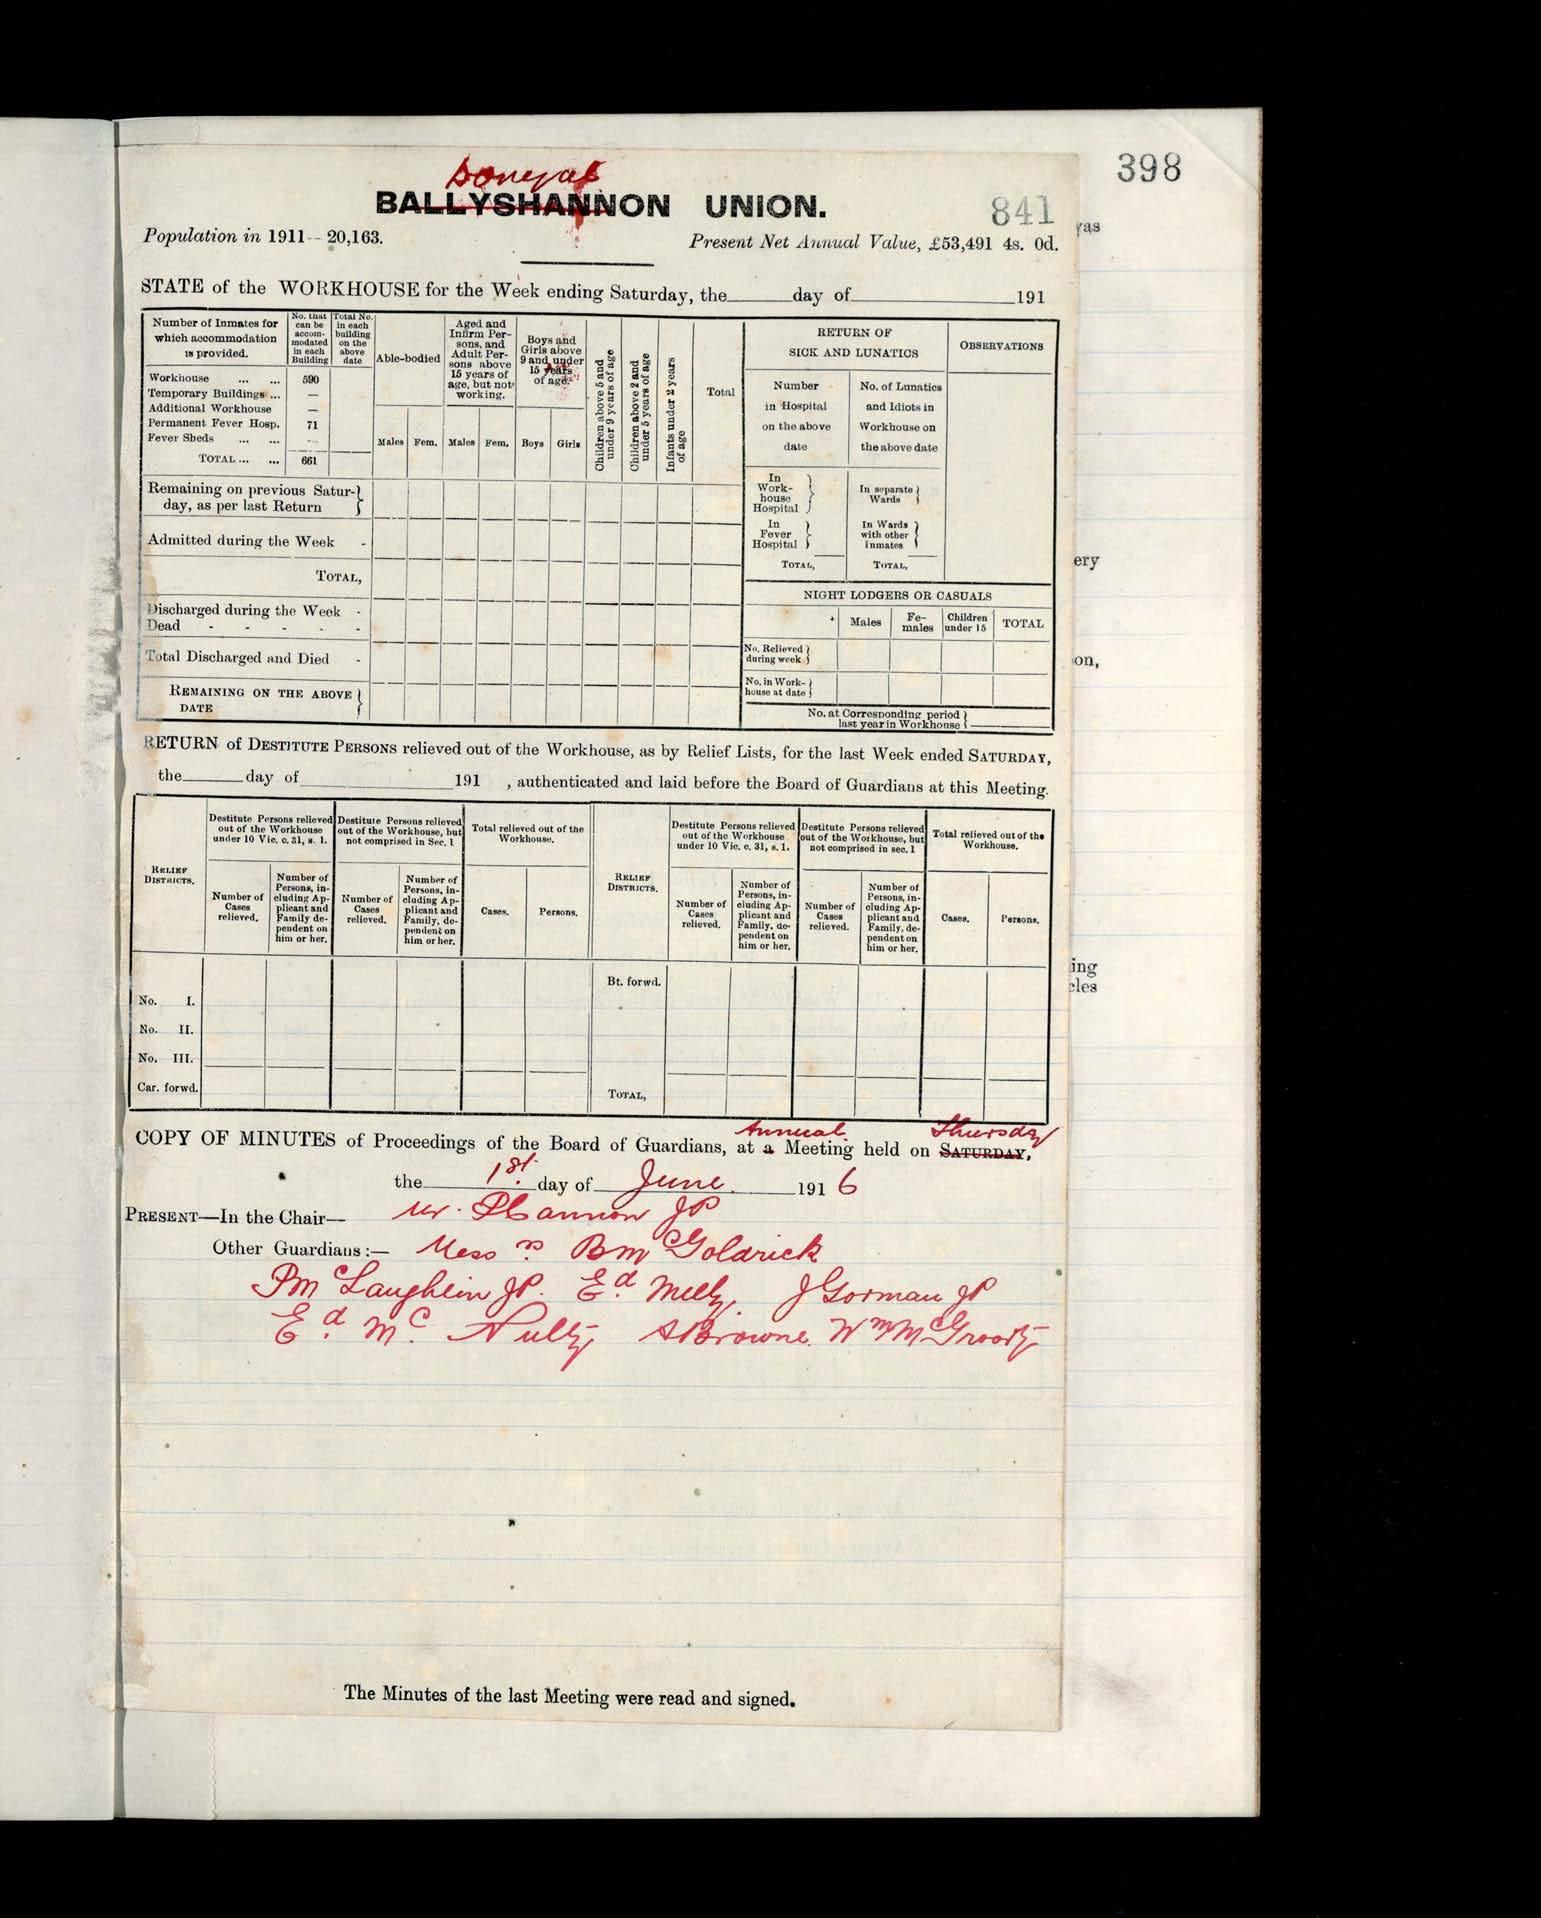 398
Donegal
BALLYSHANNON UNION.
841
Population in 1911 -- 20,163.
Present Net Annual Value, £53,491 4s. 0d.
STATE of the WORKHOUSE for the Week ending Saturday, the day of 191
Number of Inmates for which accommodation is provided.
No. that can be accom-modated in each Building
Total No. in each building on the above date
Able-bodied
Aged and Infirm Per-sons, and Adult Per-sons above 15 years of age, but not working.
Boys and Girls above 9 and under 15 years of age.
Children above 5 and under 9 years of age
Children above 2 and under 5 years of age
Infants under 2 years of age
Total
RETURN OF SICK AND LUNATICS
OBSERVATIONS
Workhouse ... ... 590
Temporary Buildings ... —
Additional Workhouse —
Permanent Fever Hosp. 71
Fever Sheds ... ...
TOTAL ... ... 661
Males Fem. Males Fem. Boys Girls
Number in Hospital on the above date
No. of Lunatics and Idiots in Workhouse on the above date
Remaining on previous Satur-day, as per last Return
Admitted during the Week -
TOTAL,
Discharged during the Week -
Dead - - - - -
Total Discharged and Died -
REMAINING ON THE ABOVE DATE
In Work-house Hospital
In separate Wards
In Fever Hospital
In Wards with other inmates
TOTAL, TOTAL,
NIGHT LODGERS OR CASUALS
Males Fe-males Children under 15 TOTAL
No. Relieved during week
No. in Work-house at date
No. at Corresponding period last year in Workhouse
RETURN of DESTITUTE PERSONS relieved out of the Workhouse, as by Relief Lists, for the last Week ended SATURDAY,
the day of 191 , authenticated and laid before the Board of Guardians at this Meeting.
RELIEF DISTRICTS.
Destitute Persons relieved out of the Workhouse under 10 Vic. c. 31, s. 1.
Destitute Persons relieved out of the Workhouse, but not comprised in Sec. 1
Total relieved out of the Workhouse.
RELIEF DISTRICTS.
Destitute Persons relieved out of the Workhouse under 10 Vic. c. 31, s. 1.
Destitute Persons relieved out of the Workhouse, but not comprised in sec. 1
Total relieved out of the Workhouse.
Number of Cases relieved.
Number of Persons, in-cluding Ap-plicant and Family de-pendent on him or her.
Number of Cases relieved.
Number of Persons, in-cluding Ap-plicant and Family, de-pendent on him or her.
Cases.
Persons.
Number of Cases relieved.
Number of Persons, in-cluding Ap-plicant and Family, de-pendent on him or her.
Number of Cases relieved.
Number of Persons, in-cluding Ap-plicant and Family, de-pendent on him or her.
Cases.
Persons.
No. I.
No. II.
No. III.
Car. forwd.
Bt. forwd.
TOTAL,
Annual Thursday
COPY OF MINUTES of Proceedings of the Board of Guardians, at a Meeting held on SATURDAY,
the 1st. day of June 1916
PRESENT—In the Chair— Mr. P Cannon JP
Other Guardians :— Messrs. B McGoldrick
P McLaughlin JP. Ed. Melly, J Gorman JP
Ed. Mc. Nulty, S Browne. Wm McGroarty
The Minutes of the last Meeting were read and signed.
vas
ery
on,
ing
cles